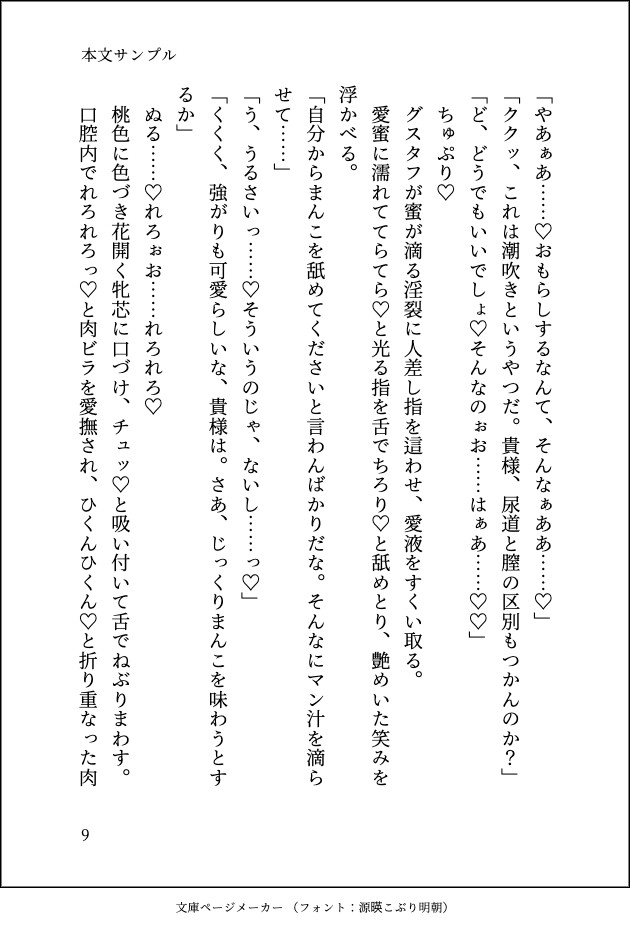 本文サンプル
「やあぁあ……♡おもらしするなんて、そんなぁああ……♡」
「ククッ、これは潮吹きというやつだ。貴様、尿道と膣の区別もつかんのか？」
「ど、どうでもいいでしょ♡そんなのぉお……はぁあ……♡♡」
ちゅぷり♡
グスタフが蜜が滴る淫裂に人差し指を這わせ、愛液をすくい取る。
愛蜜に濡れててらてら♡と光る指を舌でちろり♡と舐めとり、艶めいた笑みを
浮かべる。
「自分からまんこを舐めてくださいと言わんばかりだな。そんなにマン汁を滴ら
せて……」
「う、うるさいっ……♡そういうのじゃ、ないし……っ♡」
「くくく、強がりも可愛らしいな、貴様は。さあ、じっくりまんこを味わうとす
るか」
ぬる……♡れろぉお……れろれろ♡
桃色に色づき花開く牝芯に口づけ、チュッ♡と吸い付いて舌でねぶりまわす。
口腔内でれろれろっ♡と肉ビラを愛撫され、ひくんひくん♡と折り重なった肉
9
文庫ページメーカー（フォント：源暎こぶり明朝）